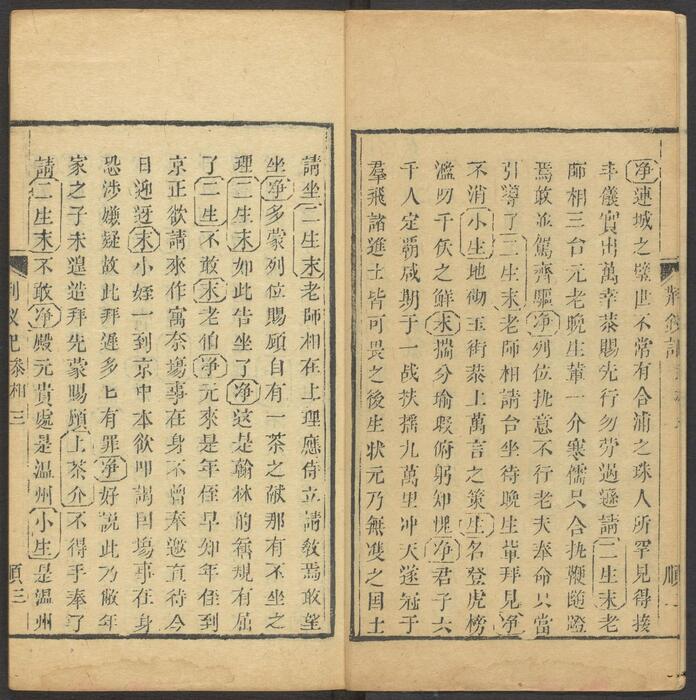 净連城之璧世不常有合浦之珠人所罕見得接
丰儀實出萬幸恭賜先行勿勞過遜請二生末老
師相三台元老晚生輩一介寒儒只合執鞭隨蹬
焉敢並駕齊驅净列位執意不行老夫奉命只當
引導了二生末老師相請台坐待晚生輩拜見净
不消小生地徹玉街恭上萬言之策生名登虎榜
濫叨千佚之鮮末揣分瑜瑕俯躬知愧净君子六
千人定覇咸期于一战扶摇九萬里冲天遂冠于
羣飛諸進士皆可畏之後生狀元乃無䨇之国士
荆釵記
順
請坐二生末老師相在上理應侍立請敎焉敢望
坐净多蒙列位賜顧自有一茶之献那有不坐之
理二生末如此告坐了净这是翰林的稱規有屈
了二生不敢末老伯净元來是年侄早知年侄到
京正欲請來作寓奈塲事在身不曾奉邀直待今
日迎迓末小姪一到京中本欲叩謁因塲事在身
恐涉嫌疑故此拜遲多匕有罪净好説此乃敝年
家之子未遑造拜先蒙賜顧上茶介不得手奉了
請二生末不敢净殿元貴處是温州小生是温州
荆釵記参相
三
順三